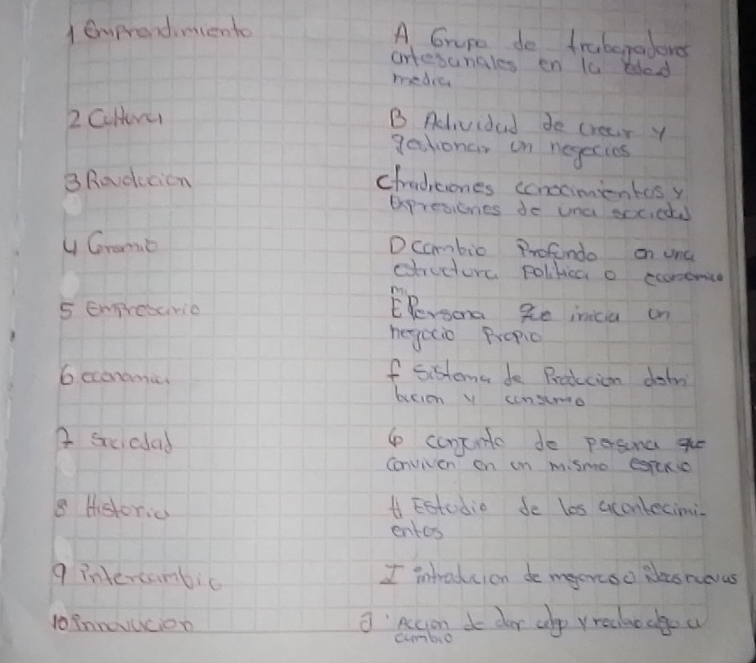 1 Emprendimiento
A Grupo de trabajadores
artesanales en la edad
media
2 Cultura
B Actividad de crear y
gestionar un negocios
3 Revolucion
C tradiciones conocimientos y
expresiones de una sociedad
4 Gremio
D cambio Profundo en una
estructura Politica o economica
5 empresario
E Persona que inicia un
negocio Propio
6 economia
f sistema de Produccion distri
bucion y consumo
7 sociedad
G conjunto de persona que
conviven en un mismo espacio
8 Historia
H Estudio de los acontecimi-
entos
9 intercambio
I introducion de mejoras o ideas nuevas
10 innovacion
J Accion de dar algo y recibir algo a
cambio